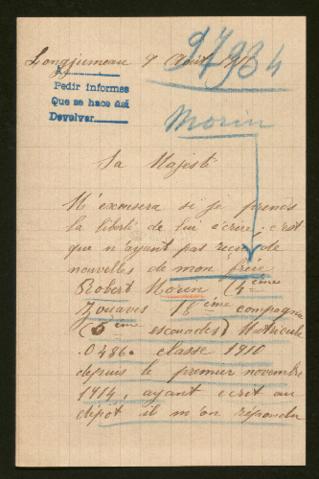 Longjumeau 9 Août
97934
A
Pedir informes
Que se hace así
Devolver
Morin
Sa Majesté
M'excusera si je prends
la liberté de lui écrire: c'est
que n'ayant pas reçu de
nouvelles de mon frère
Robert Morin (4ème
Zouaves 16ème compagnie
(5ème escouades) Matricule
0486. classe 1910
depuis le premier novembre
1914, ayant écrit au
dépôt il m'on répondu